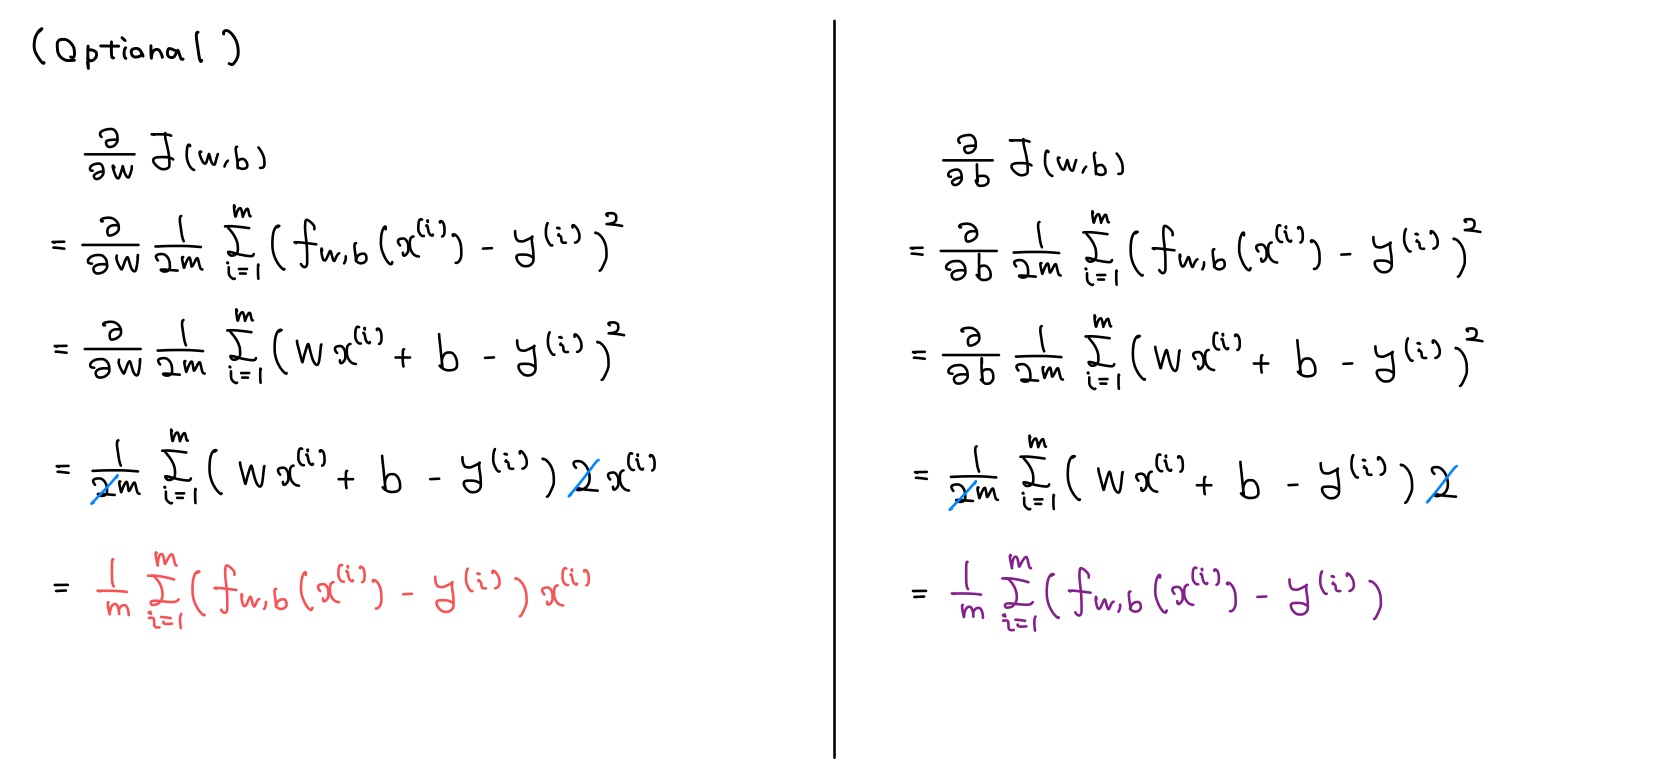 (Optional)
∂/∂w J(w,b)
= ∂/∂w 1/2m Σ_{i=1}^{m} (f_{w,b}(x^{(i)}) - y^{(i)})^2
= ∂/∂w 1/2m Σ_{i=1}^{m} (wx^{(i)} + b - y^{(i)})^2
= 1/2m Σ_{i=1}^{m} (wx^{(i)} + b - y^{(i)}) 2x^{(i)}
= 1/m Σ_{i=1}^{m} (f_{w,b}(x^{(i)}) - y^{(i)}) x^{(i)}
∂/∂b J(w,b)
= ∂/∂b 1/2m Σ_{i=1}^{m} (f_{w,b}(x^{(i)}) - y^{(i)})^2
= ∂/∂b 1/2m Σ_{i=1}^{m} (wx^{(i)} + b - y^{(i)})^2
= 1/2m Σ_{i=1}^{m} (wx^{(i)} + b - y^{(i)}) 2
= 1/m Σ_{i=1}^{m} (f_{w,b}(x^{(i)}) - y^{(i)})